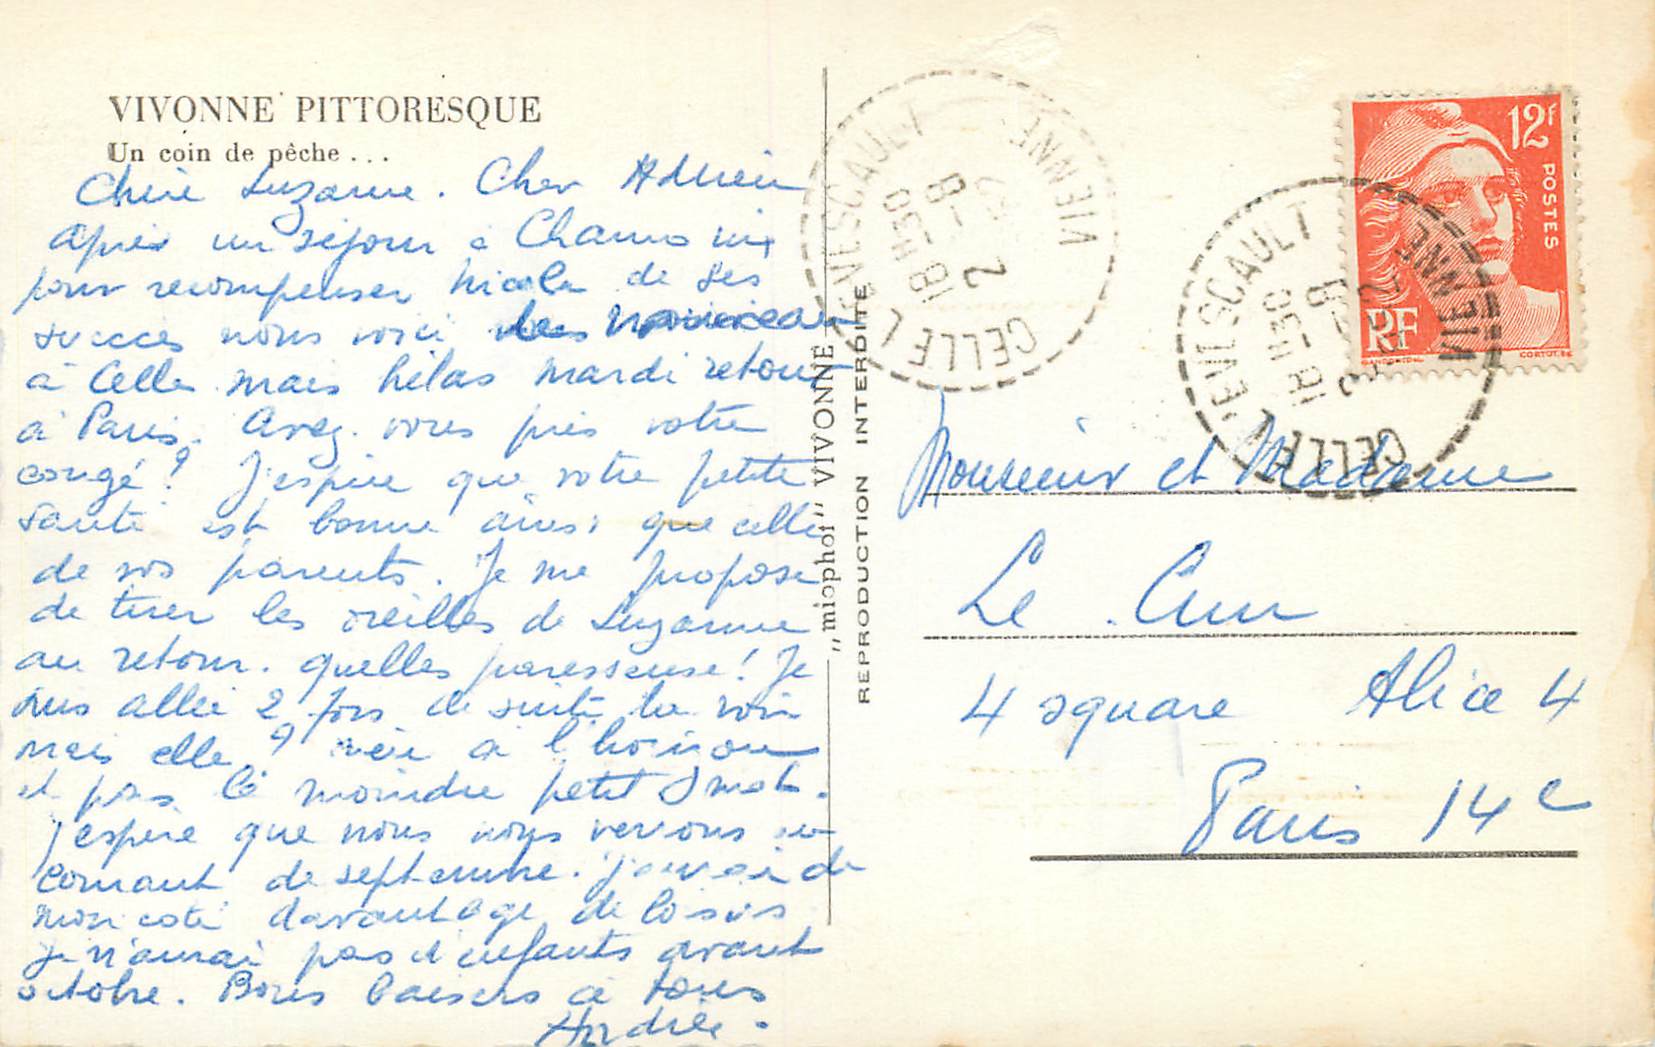 VIVONNE PITTORESQUE
Un coin de pêche...
Chère Suzanne. Cher Adrien
après un séjour à Chamonix
pour recompenser Nicole de ses
succès nous voici
à Celle mais hélas mardi retour
à Paris. Avez-vous pris votre
congé? J'espère que votre petite
santé est bonne ainsi que celle
de vos parents. Je me propose
de tirer les oreilles de Suzanne
au retour. quelles paresseuse! Je
suis allée 2 fois de suite la voir
mais elle à l'horizon
et pas le moindre petit mot.
j'espère que nous nous verrons au
courant de septembre. j'aurai de
mon coté davantage de loisirs
je n'aurai pas d'enfants avant
octobre. Bons baisers à tous
Andrée.
„miophot" VIVONNE
REPRODUCTION INTERDITE
CELLE L'EVESCAULT VIENNE
18H30
2-8
CELLE L'EVESCAULT VIENNE
18H30
12f
POSTES
RF
GANDON DEL.
CORTOT, SC
Monsieur et Madame
Le Cun
4 square Alice 4
Paris 14e